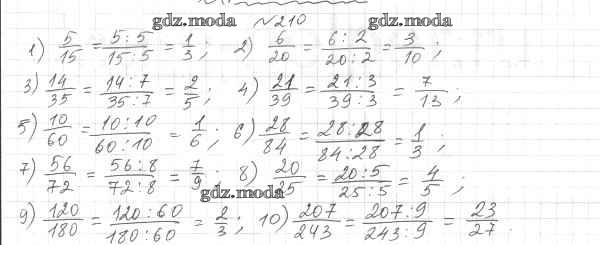 gdz.moda №210 gdz.moda
1) 5/15 = 5:5/15:5 = 1/3; 2) 6/20 = 6:2/20:2 = 3/10;
3) 14/35 = 14:7/35:7 = 2/5; 4) 21/39 = 21:3/39:3 = 7/13;
5) 10/60 = 10:10/60:10 = 1/6; 6) 28/84 = 28:28/84:28 = 1/3;
7) 56/72 = 56:8/72:8 = 7/9; 8) 20/25 = 20:5/25:5 = 4/5;
gdz.moda
9) 120/180 = 120:60/180:60 = 2/3; 10) 207/243 = 207:9/243:9 = 23/27.